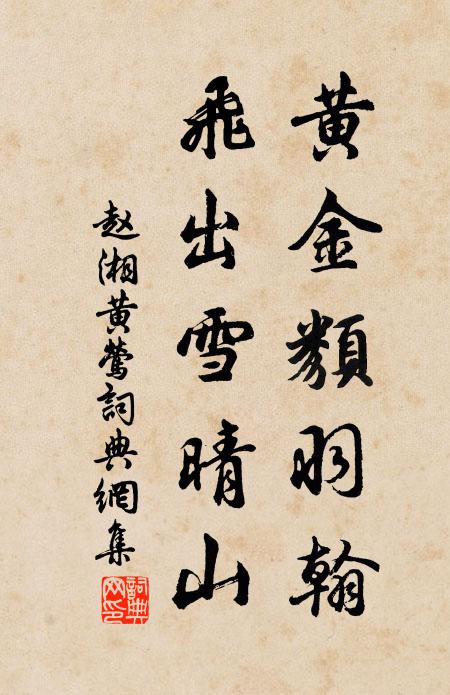 黄金類羽翰
飛出雪晴山
赵湘黄鶯詞典網集
詞典网印